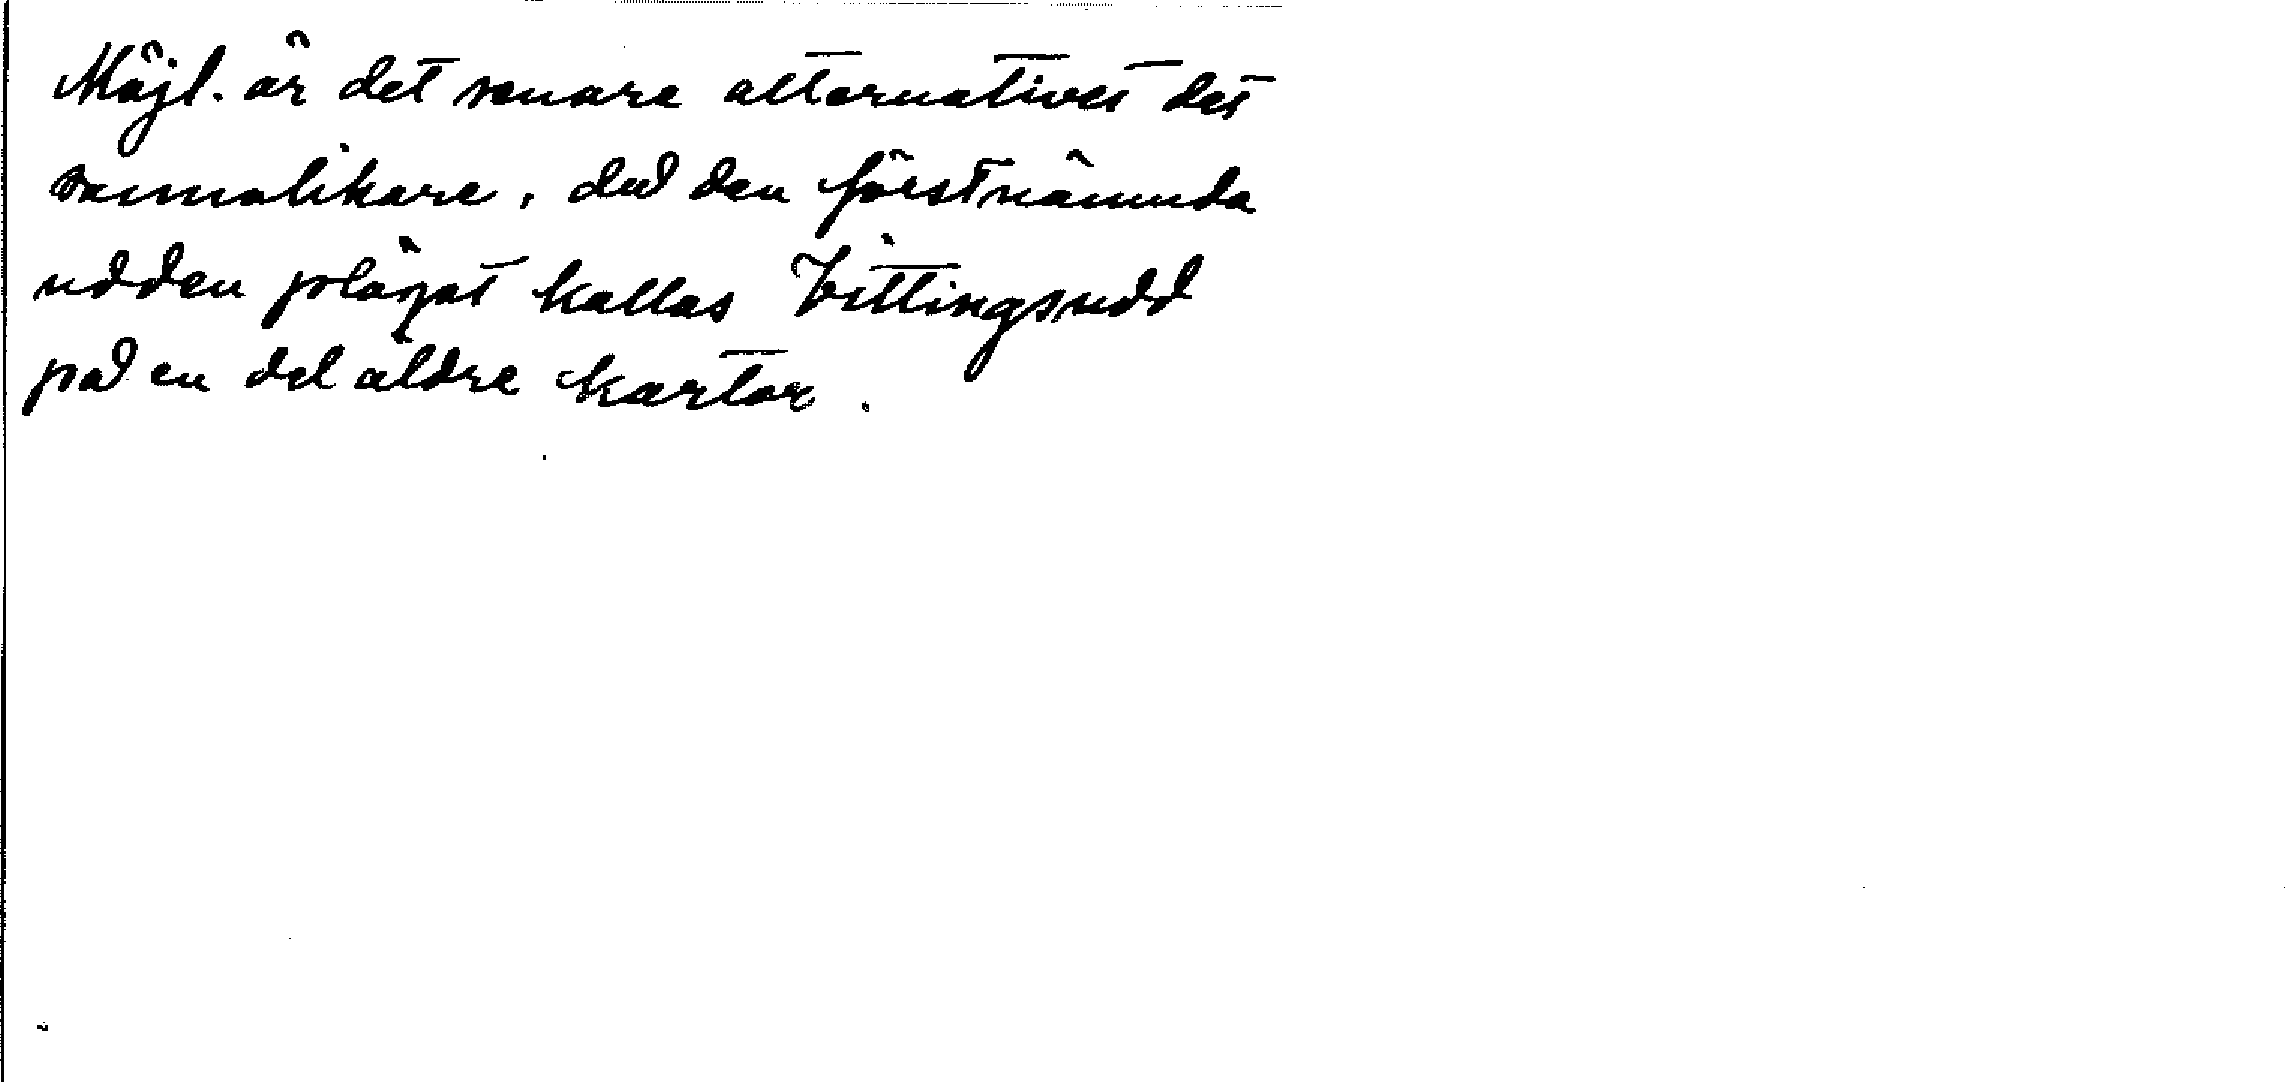 Möjl. är det senare alternativet det
sannolikare, då den förstnämnda
udden plägat kallas Vittingsudd
på en del äldre kartor.